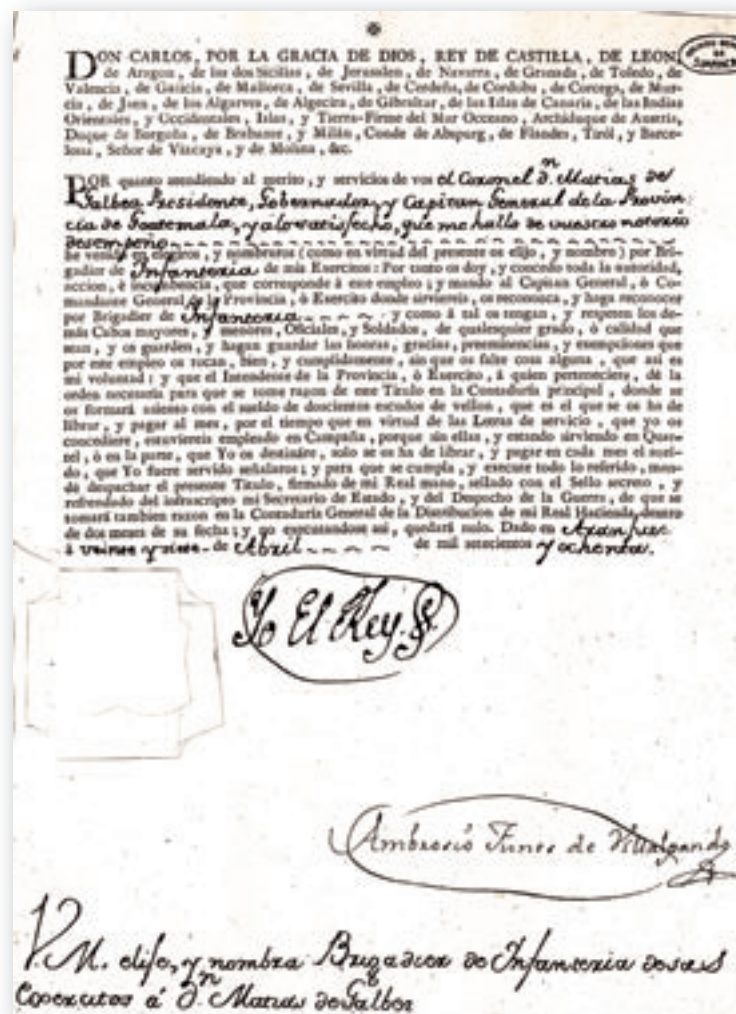 DON CARLOS, POR LA GRACIA DE DIOS, REY DE CASTILLA, DE LEON,
de Aragon, de las dos Sicilias, de Jerusalen, de Navarra, de Granada, de Toledo, de
Valencia, de Galicia, de Mallorca, de Sevilla, de Cerdeña, de Cordoba, de Corcega, de Mur-
cia, de Jaen, de los Algarves, de Algecira, de Gibraltar, de las Islas de Canaria, de las Indias
Orientales, y Occidentales, Islas, y Tierra-Firme del Mar Occeano, Archiduque de Austria,
Duque de Borgoña, de Brabante, y Milán, Conde de Abspurg, de Flandes, Tiról, y Barce-
lona, Señor de Vizcaya, y de Molina, &c.
POR quanto atendiendo al merito, y servicios de vos el Coronel dn. Matias de
Galbez Presidente, Gobernador, y Capitan General de la Provin-
cia de Goatemala, y alo satisfecho, que me hallo de vuestro notorio
desempeño
he venido en elegiros, y nombraros (como en virtud del presente os elijo, y nombro) por Bri-
gadier de Infanteria de mis Exercitos: Por tanto os doy, y concedo toda la autoridad,
accion, è incumbencia, que corresponde à este empleo; y mando al Capitan General, ò Co-
mandante General de la Provincia, ò Exercito donde sirviereis, os reconozca, y haga reconocer
por Brigadier de Infanteria y como à tal os tengan, y respeten los de-
más Cabos mayores, y menores, Oficiales, y Soldados, de qualesquier grado, ò calidad que
sean, y os guarden, y hagan guardar las honras, gracias, preeminencias, y exempciones que
por este empleo os tocan, bien, y cumplidamente, sin que os falte cosa alguna, que asi es
mi voluntad; y que el Intendente de la Provincia, ò Exercito, à quien perteneciere, dé la
orden necesaria para que se tome razon de este Titulo en la Contaduría principal, donde se
os formará asiento con el sueldo de doscientos escudos de vellon, que es el que se os ha de
librar, y pagar al mes, por el tiempo que en virtud de las Letras de servicio, que yo os
concediere, estuviereis empleado en Campaña, porque sin ellas, y estando sirviendo en Quar-
tel, ò en la parte, que Yo os destináre, solo se os ha de librar, y pagar en cada mes el suel-
do, que Yo fuere servido señalaros; y para que se cumpla, y execute todo lo referido, man-
dé despachar el presente Titulo, firmado de mi Real mano, sellado con el Sello secreto, y
refrendado del infrascripto mi Secretario de Estado, y del Despacho de la Guerra, de que se
tomará tambien razon en la Contaduría General de la Distribucion de mi Real Hacienda dentro
de dos meses de su fecha; y no executandose asi, quedará nulo. Dado en Aranjuez
à veinte y siete de Abril de mil setecientos y ochenta.
Yo El Rey
Ambrosio Funes de Villalpando
V. M. elije, y nombra Brigadier de Infanteria de sus
Exercitos a dn. Matias de Galbez